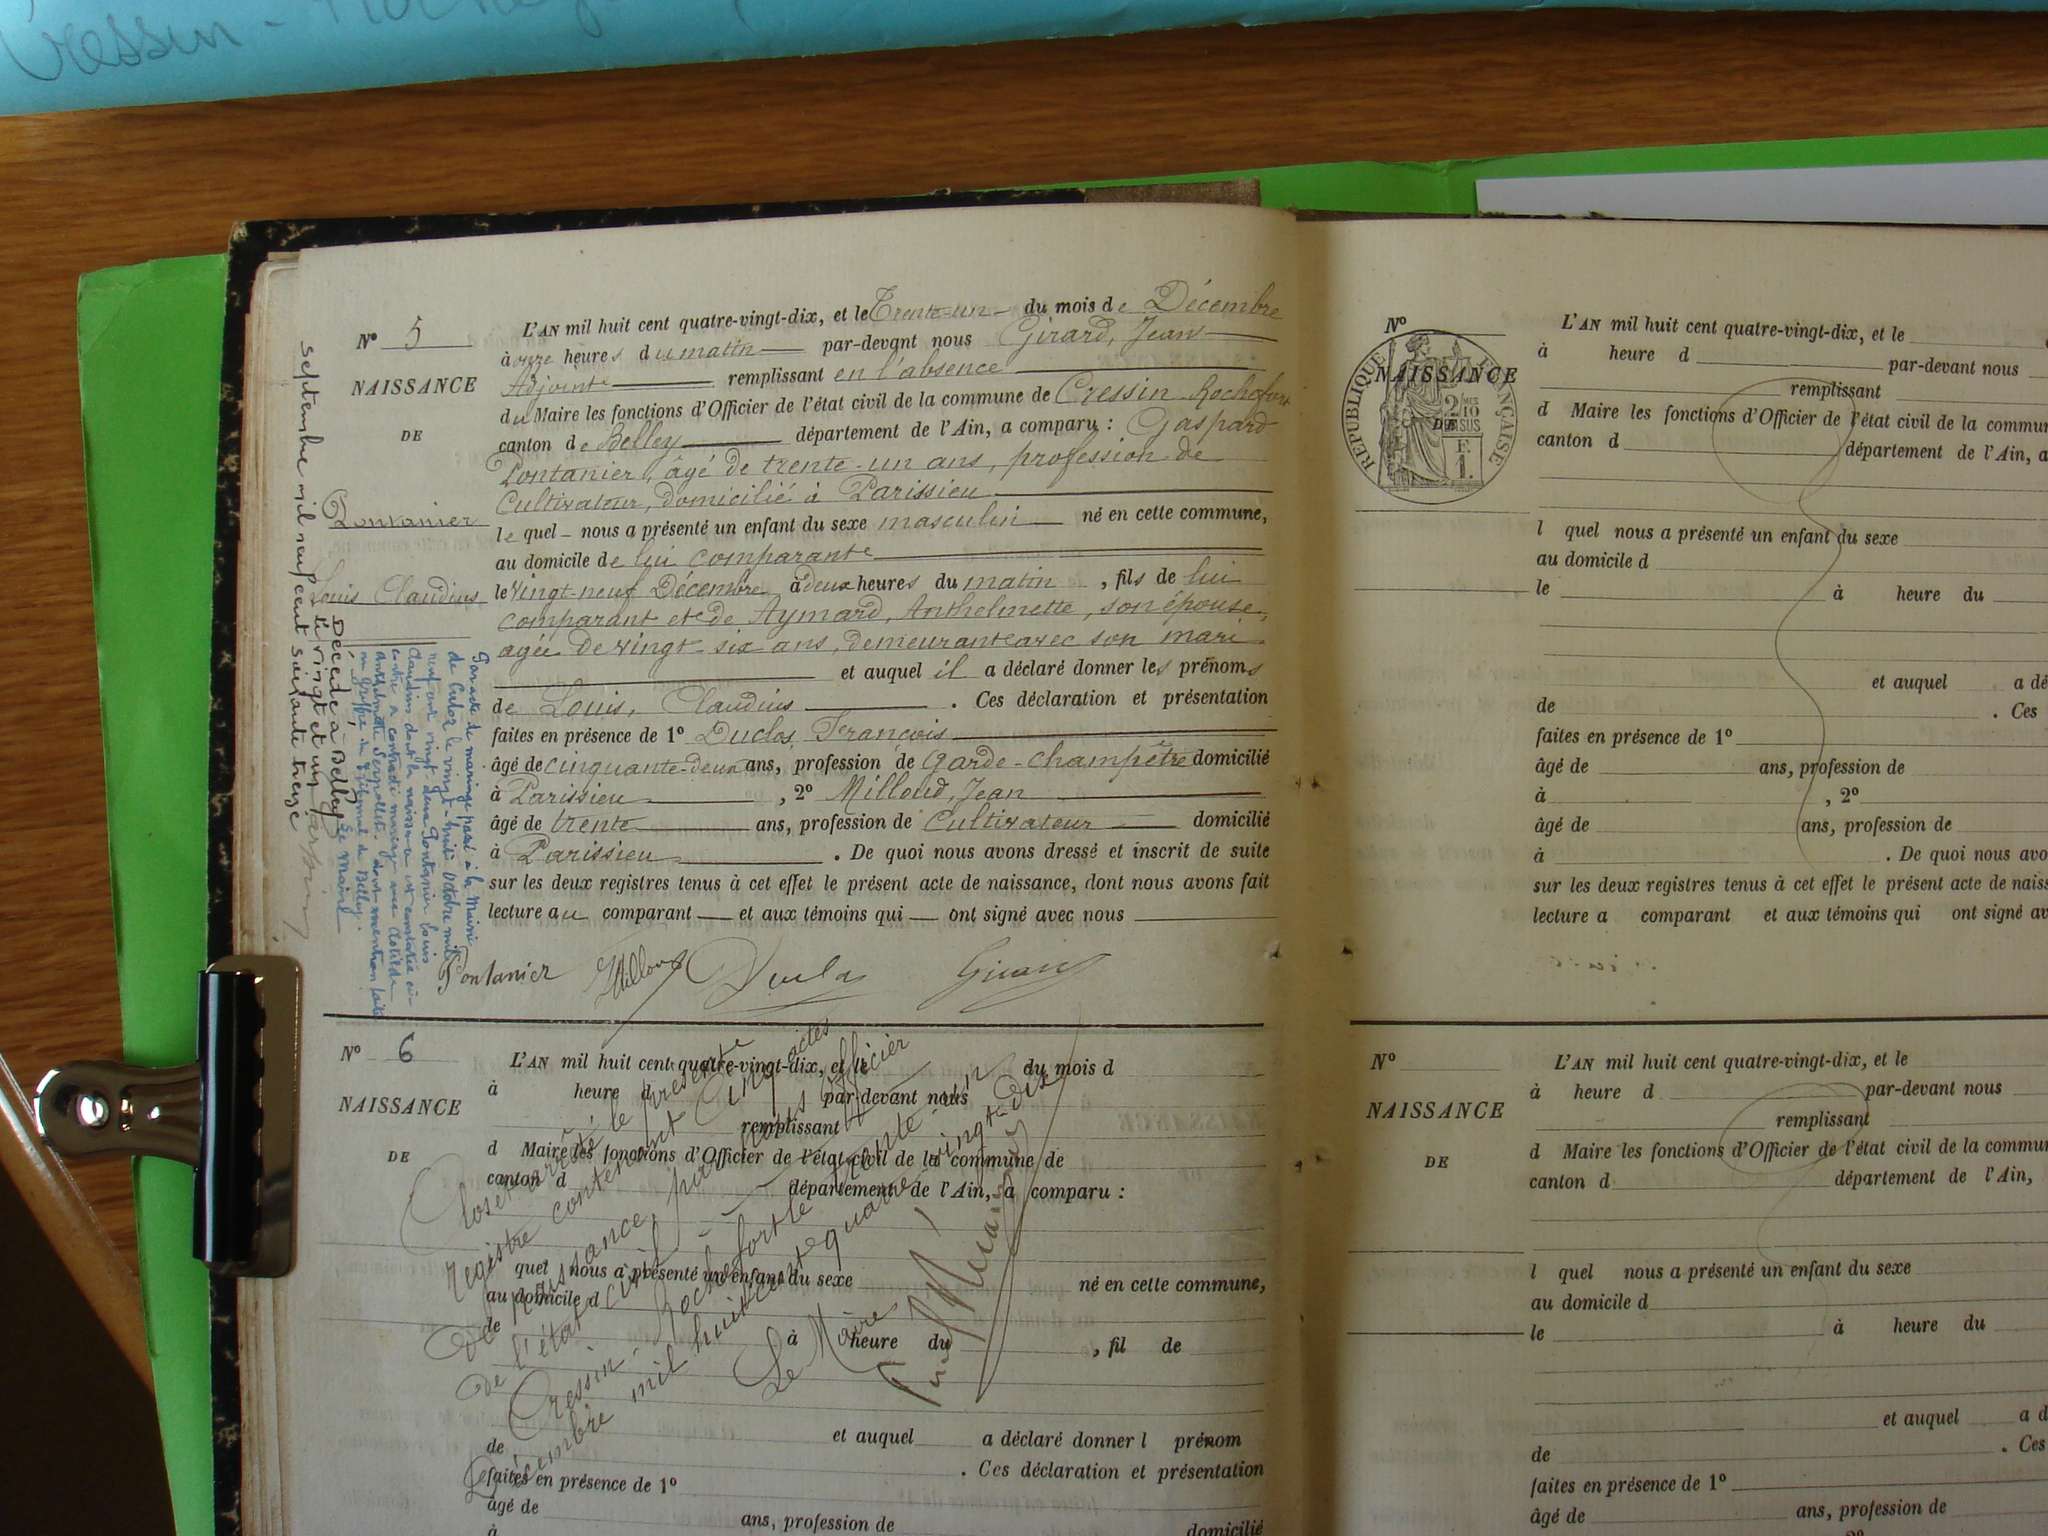 Cressin -
N° 5
NAISSANCE
DE
Pontanier
Louis Claudius
L'AN mil huit cent quatre-vingt-dix, et le Trente-un du mois de Décembre
à onze heures du matin par-devant nous Girard, Jean
Adjoint remplissant en l'absence
du Maire les fonctions d'Officier de l'état civil de la commune de Cressin-Rochefort
canton de Belley département de l'Ain, a comparu : Gaspard
Pontanier, âgé de trente-un ans, profession de
Cultivateur, domicilié à Parissieu
lequel nous a présenté un enfant du sexe masculin né en cette commune,
au domicile de lui comparant
le vingt-neuf Décembre à deux heures du matin, fils de lui
comparant et de Aymard, Anthelmette, son épouse,
agée de vingt-six ans, demeurant avec son mari
et auquel il a déclaré donner les prénoms
de Louis, Claudius. Ces déclaration et présentation
faites en présence de 1° Duclos, François
âgé de cinquante-deux ans, profession de Garde-champêtre domicilié
à Parissieu, 2° Milloud, Jean
âgé de trente ans, profession de Cultivateur domicilié
à Parissieu. De quoi nous avons dressé et inscrit de suite
sur les deux registres tenus à cet effet le présent acte de naissance, dont nous avons fait
lecture au comparant et aux témoins qui ont signé avec nous
Pontanier Milloud Duclos Girard
Par acte de mariage passé à la Mairie
de Culoz le vingt-huit Octobre mil
neuf cent vingt deux Pontanier Louis
Claudius dont la naissance est constatée ci-
contre a contracté mariage avec Clotilde
Anthelmette Serpollet dont mention faite
au greffe du tribunal de Belley.
Le Maire
Décédé à Belley
le vingt et un
septembre mil neuf cent soixante treize
N° 6
NAISSANCE
DE
L'AN mil huit cent quatre-vingt-dix, et le du mois d
à heure d par-devant nous
remplissant
d Maire les fonctions d'Officier de l'état civil de la commune de
canton d département de l'Ain, a comparu :
quel nous a présenté un enfant du sexe né en cette commune,
au domicile d
à heure du , fil de
et auquel a déclaré donner l prénom
de . Ces déclaration et présentation
faites en présence de 1°
âgé de ans, profession de
à domicilié
Clos et arrêté le présent
registre contenant Cinq actes
de naissance, par nous Officier
de l'état civil
Cressin-Rochefort le trente-un
Décembre mil huit cent quatre vingt dix
Le Maire
N°
NAISSANCE
DE
RÉPUBLIQUE FRANÇAISE
2/10 EN SUS
F. 1.
L'AN mil huit cent quatre-vingt-dix, et le
à heure d par-devant nous
remplissant
d Maire les fonctions d'Officier de l'état civil de la commun
canton d département de l'Ain, a
l quel nous a présenté un enfant du sexe
au domicile d
le à heure du
et auquel a dé
de . Ces
faites en présence de 1°
âgé de ans, profession de
à , 2°
âgé de ans, profession de
à . De quoi nous avo
sur les deux registres tenus à cet effet le présent acte de naiss
lecture a comparant et aux témoins qui ont signé av
N°
NAISSANCE
DE
L'AN mil huit cent quatre-vingt-dix, et le
à heure d par-devant nous
remplissant
d Maire les fonctions d'Officier de l'état civil de la commu
canton d département de l'Ain,
l quel nous a présenté un enfant du sexe
au domicile d
le à heure du
et auquel a d
de . Ces
faites en présence de 1°
âgé de ans, profession de